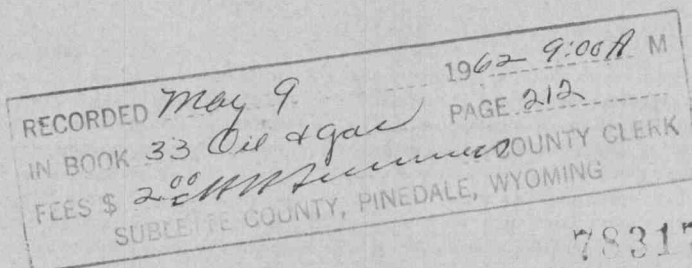 RECORDED May 9 1962 9:00 A M
IN BOOK 33 Oil & gas PAGE 212
FEES $ 2.00 COUNTY CLERK
SUBLETTE COUNTY, PINEDALE, WYOMING
78317